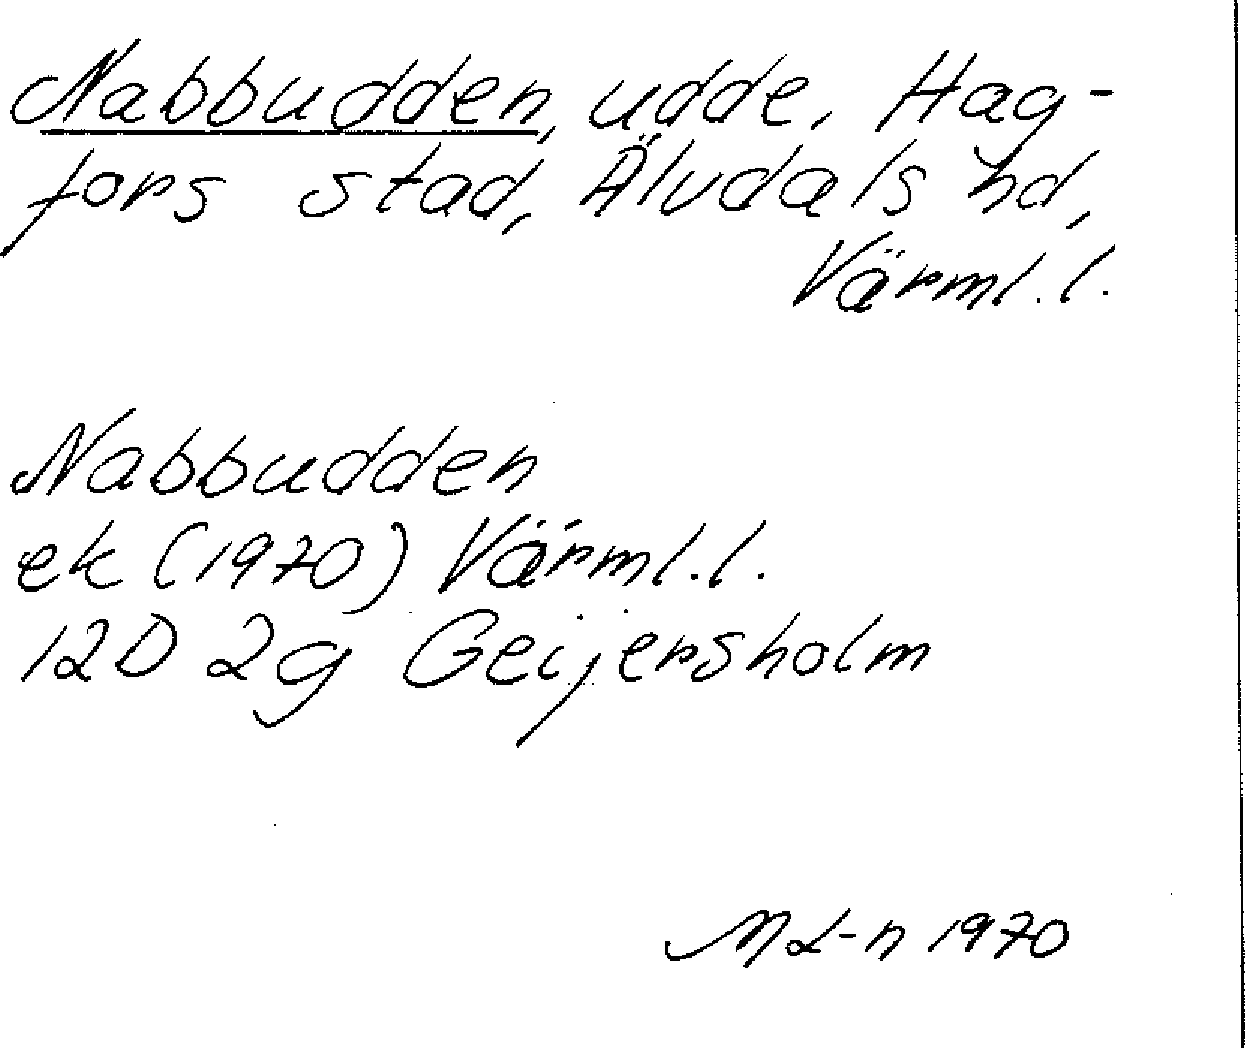 Nabbudden, udde, Hag-
fors stad, Älvdals hd,
Värml. l.
Nabbudden
ek (1970) Värml. l.
12D 2g Geijersholm
ML-n 1970